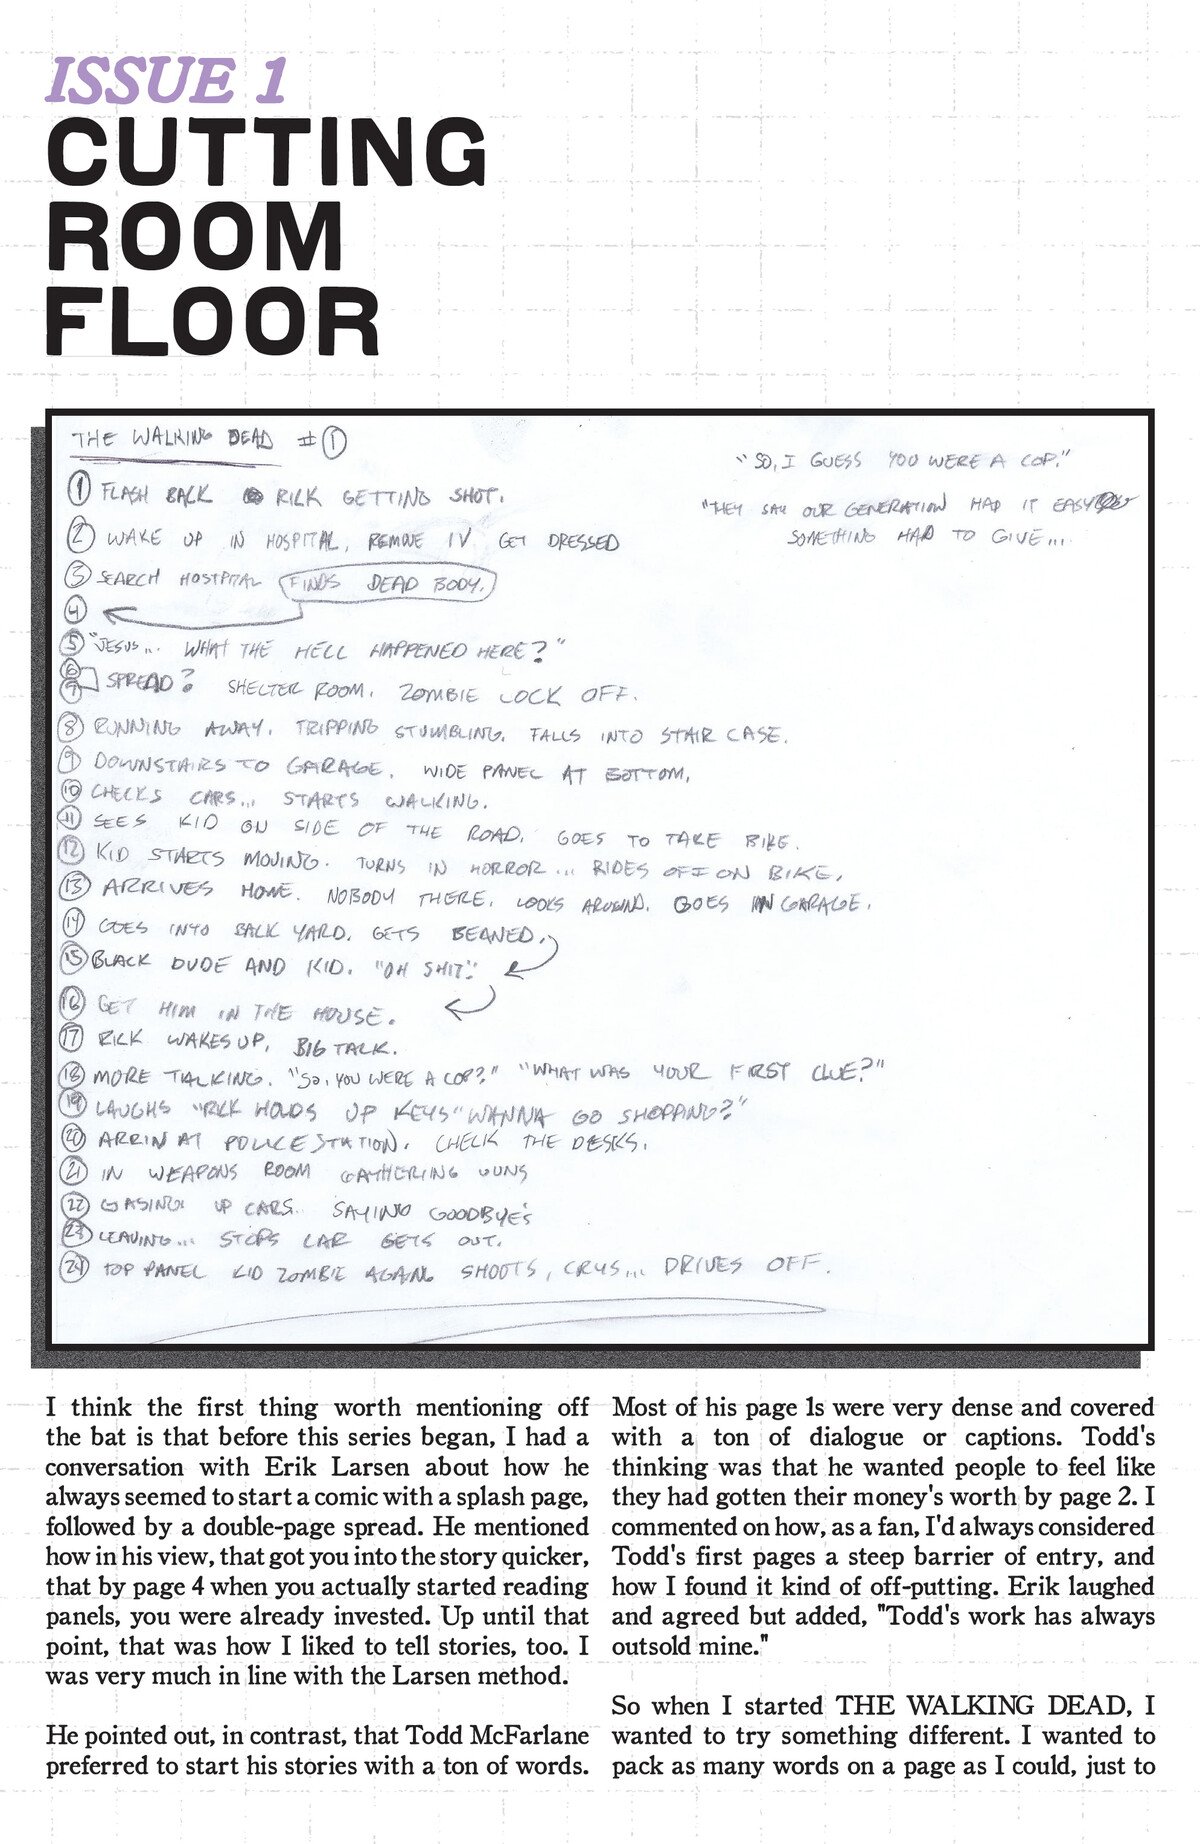 ISSUE 1
CUTTING
ROOM
FLOOR
THE WALKING DEAD #1
"SO, I GUESS YOU WERE A COP."
"THEY SAY OUR GENERATION HAD IT EASY
SOMETHING HAD TO GIVE...
1 FLASH BACK RICK GETTING SHOT.
2 WAKE UP IN HOSPITAL, REMOVE IV GET DRESSED
3 SEARCH HOSTPITAL FINDS DEAD BODY.
4
5 "JESUS... WHAT THE HELL HAPPENED HERE?"
6
7 SPREAD? SHELTER ROOM. ZOMBIE LOCK OFF.
8 RUNNING AWAY. TRIPPING STUMBLING. FALLS INTO STAIR CASE.
9 DOWNSTAIRS TO GARAGE. WIDE PANEL AT BOTTOM.
10 CHECKS CARS... STARTS WALKING.
11 SEES KID ON SIDE OF THE ROAD. GOES TO TAKE BIKE.
12 KID STARTS MOVING. TURNS IN HORROR... RIDES OFF ON BIKE.
13 ARRIVES HOME. NOBODY THERE. LOOKS AROUND. GOES IN GARAGE.
14 GOES INTO BACK YARD. GETS BEANED.
15 BLACK DUDE AND KID. "OH SHIT."
16 GET HIM IN THE HOUSE.
17 RICK WAKES UP, BIG TALK.
18 MORE TALKING. "SO, YOU WERE A COP?" "WHAT WAS YOUR FIRST CLUE?"
19 LAUGHS "RICK HOLDS UP KEYS "WANNA GO SHOPPING?"
20 ARRIN AT POLICE STATION. CHECK THE DESKS.
21 IN WEAPONS ROOM GATHERING GUNS
22 GASING UP CARS. SAYING GOODBYE'S
23 LEAVING... STOPS CAR GETS OUT.
24 TOP PANEL KID ZOMBIE AGAIN. SHOOTS, CRYS... DRIVES OFF.
I think the first thing worth mentioning off
the bat is that before this series began, I had a
conversation with Erik Larsen about how he
always seemed to start a comic with a splash page,
followed by a double-page spread. He mentioned
how in his view, that got you into the story quicker,
that by page 4 when you actually started reading
panels, you were already invested. Up until that
point, that was how I liked to tell stories, too. I
was very much in line with the Larsen method.
He pointed out, in contrast, that Todd McFarlane
preferred to start his stories with a ton of words.
Most of his page 1s were very dense and covered
with a ton of dialogue or captions. Todd's
thinking was that he wanted people to feel like
they had gotten their money's worth by page 2. I
commented on how, as a fan, I'd always considered
Todd's first pages a steep barrier of entry, and
how I found it kind of off-putting. Erik laughed
and agreed but added, "Todd's work has always
outsold mine."
So when I started THE WALKING DEAD, I
wanted to try something different. I wanted to
pack as many words on a page as I could, just to